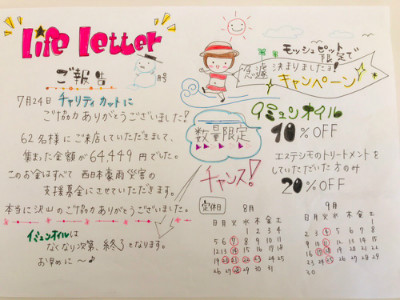 Life Letter
ご報告
号
7月24日 チャリティカットに
ご協力ありがとうございました!
62名様にご来店していただきまして、
集まった金額が64,449円でした。
このお金はすべて 西日本豪雨災害の
支援募金にさせていただきます。
本当に沢山のご協力ありがとうございました。
イミュンオイルは
なくなり次第、終了となります。
お早めに〜♪
モッシュピット限定で
急遽 決まりました
キャンペーン
数量限定
チャンス!
イミュンオイル
10%OFF
エステシモのトリートメントを
していただいた方のみ
20%OFF
定休日
8月
日月火水木金土
1 2 3 4
5 6 7 8 9 10 11
12 13 14 15 16 17 18
19 20 21 22 23 24 25
26 27 28 29 30 31
9月
日月火水木金土
1
2 3 4 5 6 7 8
9 10 11 12 13 14 15
16 17 18 19 20 21 22
23 24 25 26 27 28 29
30